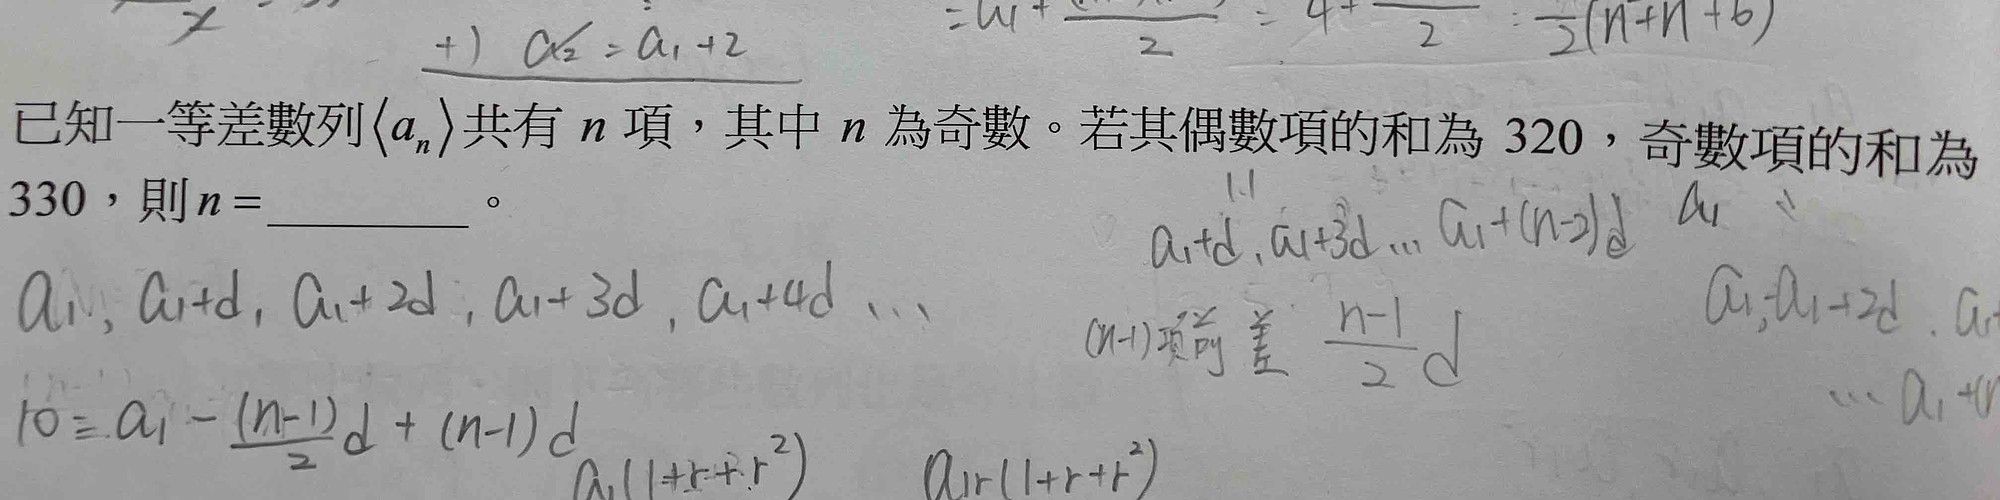 +) a₂ = a₁ + 2
已知一等差數列⟨aₙ⟩共有 n 項，其中 n 為奇數。若其偶數項的和為 320，奇數項的和為
330，則 n = ________ 。
a₁+d, a₁+3d … a₁+(n-2)d a₁
a₁, a₁+d, a₁+2d, a₁+3d, a₁+4d …
(n-1)項前差 (n-1)/2 d
a₁, a₁+2d
10 = a₁ - (n-1)/2 d + (n-1)d
a₁(1+r+r²) a₁r(1+r+r²)